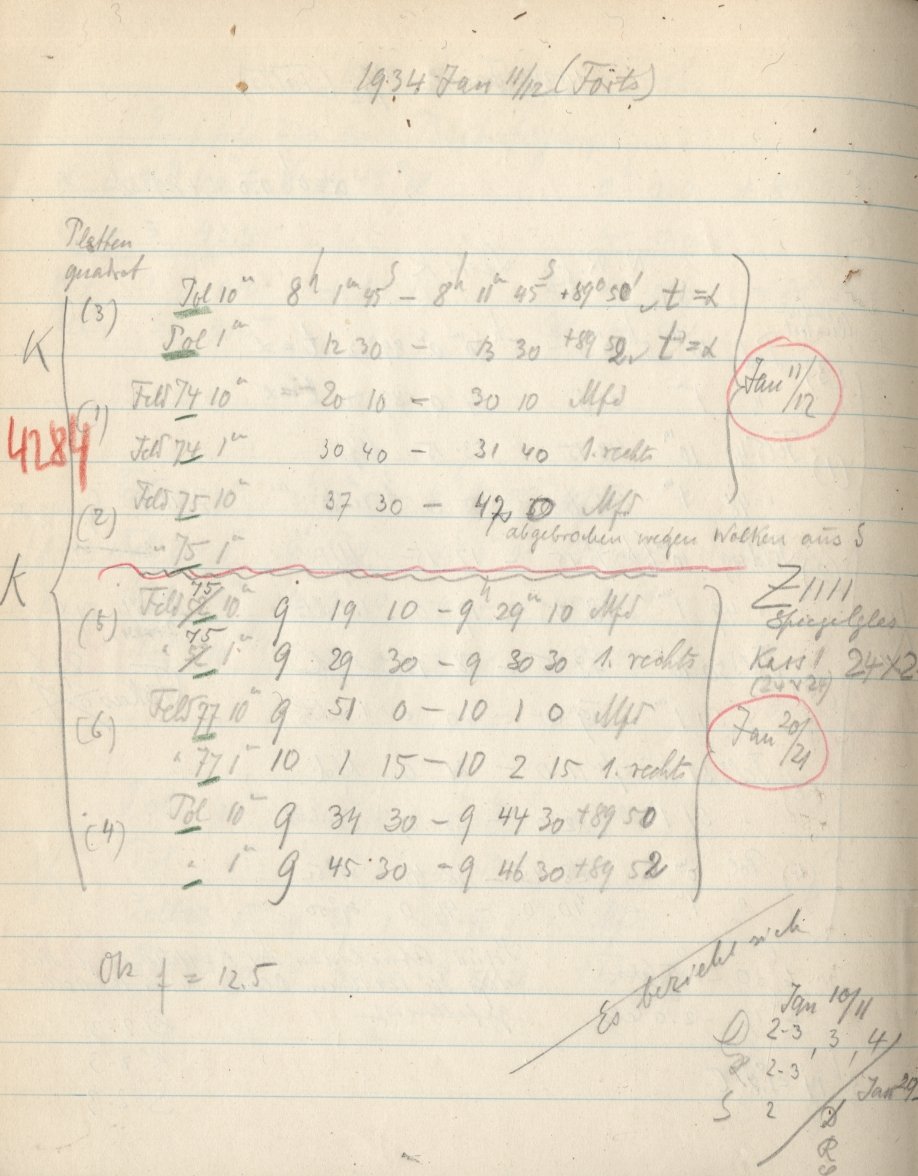 1934 Jan 11/12 (Forts)
Platten
quadrat
(3) Pol 10m 8h 1m 45s – 8h 11m 45s +89° 50' t = α
K Pol 1m 12 30 – 13 30 +89 52 t = α
(1) Feld 74 10m 20 10 – 30 10 Mfd
Jan 11/12
4284 Feld 74 1m 30 40 – 31 40 1. rechts
(2) Feld 75 10m 37 30 – 47 30 Mfd
abgebrochen wegen Wolken aus S
" 75 1m
K
Z 1111
Spiegelglas
(5) Feld 75 10m 9 19 10 – 9h 29m 10 Mfd
" 75 1m 9 29 30 – 9 30 30 1. rechts
Kass 1 24×2
(24×24)
(6) Feld 77 10m 9 51 0 – 10 1 0 Mfd
Jan 20/21
" 77 1m 10 1 15 – 10 2 15 1. rechts
(4) Pol 10m 9 34 30 – 9 44 30 +89 50
" 1m 9 45 30 – 9 46 30 +89 52
Ok f = 12.5
Es bezieht sich
Jan 10/11
D 2-3, 3, 4
R 2-3
S 2
Jan 20
D
R
S